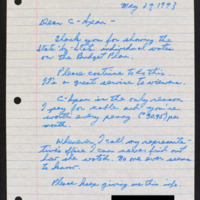 May 29, 1993
Dear C-Span -
Thank you for showing the
State-by-State individual votes
on the Budget Plan.
Please continue to do this
It's a great service to viewers.
C-Span is the only reason
I pay for cable and you're
worth every penny ($ per
month.
However, I call my representa-
tive's office I can never find out
how she voted. No one ever seems
to know.
Please keep giving us this info.